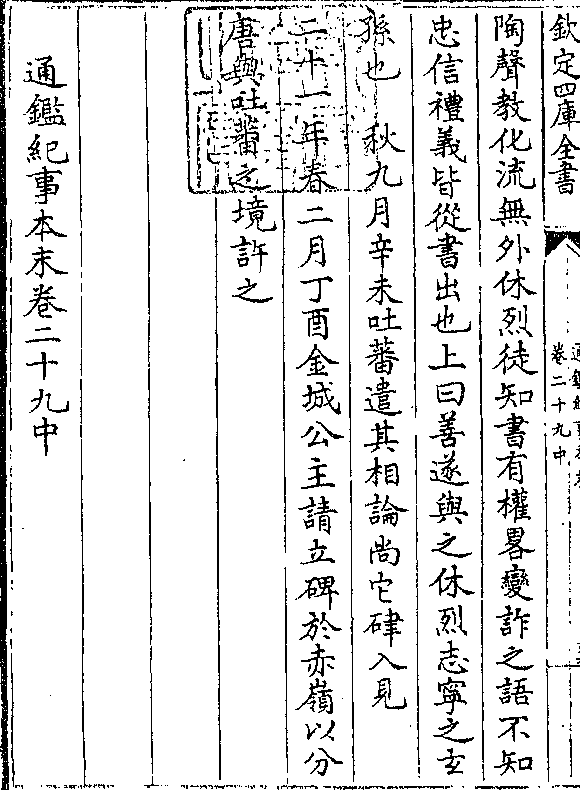 欽定四庫全書
卷二十九中
陶聲教化流無外休烈徒知書有權畧變詐之語不知
忠信禮義皆從書出也上曰善遂與之休烈志寧之玄
孫也　秋九月辛未吐蕃遣其相論尚它硉入見
二十一年春二月丁酉金城公主請立碑於赤嶺以分
唐與吐蕃之境許之
通鑑紀事本末卷二十九中